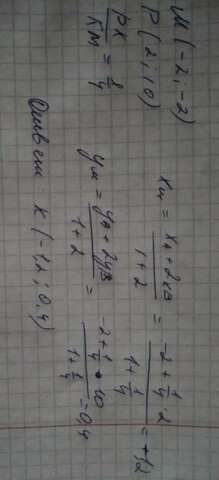 M(-2,-2)
P(2,10)
PK/KM = 1/4
x_M = (x_A + 2x_B)/(1+2) = (-2 + 1/4 · 2)/(1 + 1/4) = -1,2
y_M = (y_A + 2y_B)/(1+2) = (-2 + 1/4 · 10)/(1 + 1/4) = 0,4
Ответ: K(-1,2; 0,4)